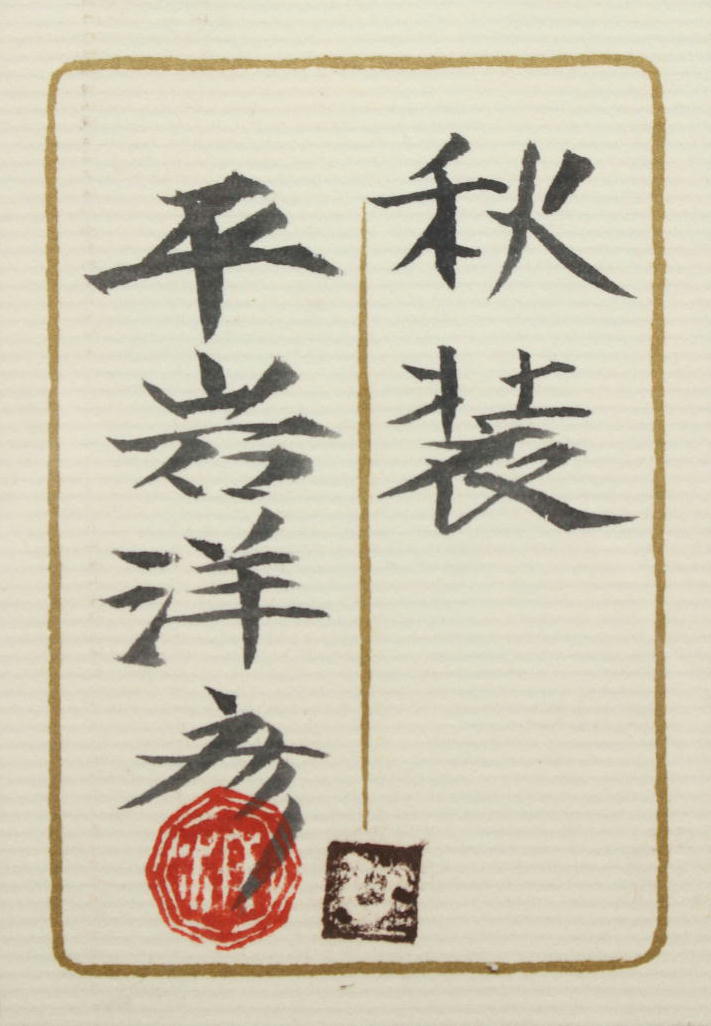 秋装
平岩洋彦